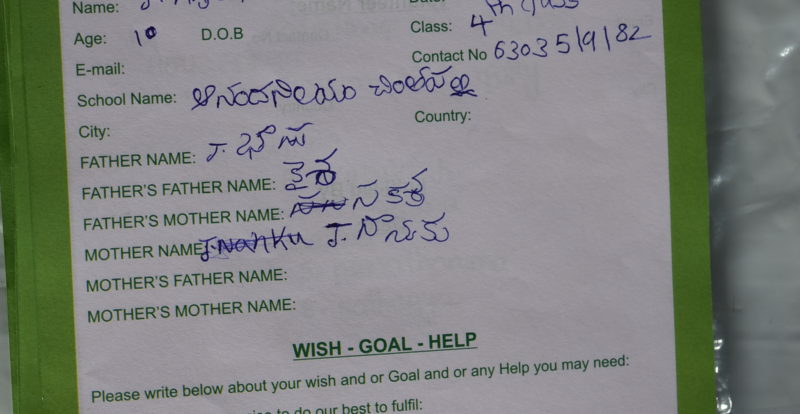 Name:
Age: 10 D.O.B Class: 4th class
E-mail: Contact No 6303519182
School Name: ఆనందనిలయం చింతపల్లి
City: Country:
FATHER NAME: J. భాను
FATHER'S FATHER NAME:
FATHER'S MOTHER NAME:
MOTHER NAME J. నానుకు
MOTHER'S FATHER NAME:
MOTHER'S MOTHER NAME:
WISH - GOAL - HELP
Please write below about your wish and or Goal and or any Help you may need:
to do our best to fulfil: